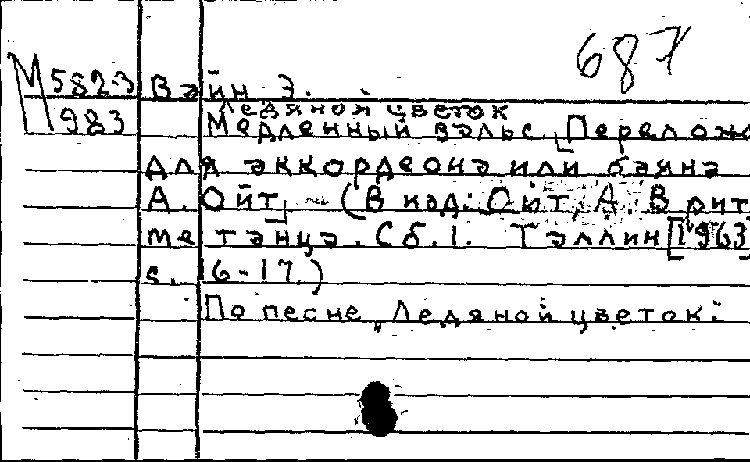 687
М 5823 Вайн Э.
983 Ледяной цветок
Медленный вальс. [Перелож
для аккордеона или баяна
А. Ойт]. — (В изд: Ойт, А. В рит
ме танца. Сб. 1. Таллин [1963]
с. 16-17.)
По песне „Ледяной цветок".